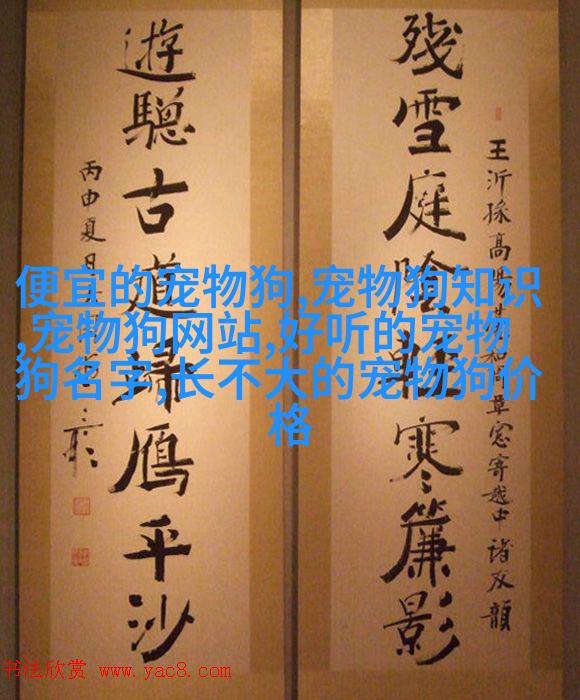 王沂孫高陽和周草窗寄越中諸友韻
殘雪庭陰輕寒簾影
遊驄古道歸鴈平沙
丙申夏月
便宜的宠物狗,宠物狗知识
,宠物狗网站,好听的宠物
狗名字,长不大的宠物狗价
格
书法欣赏 www.yac8.com